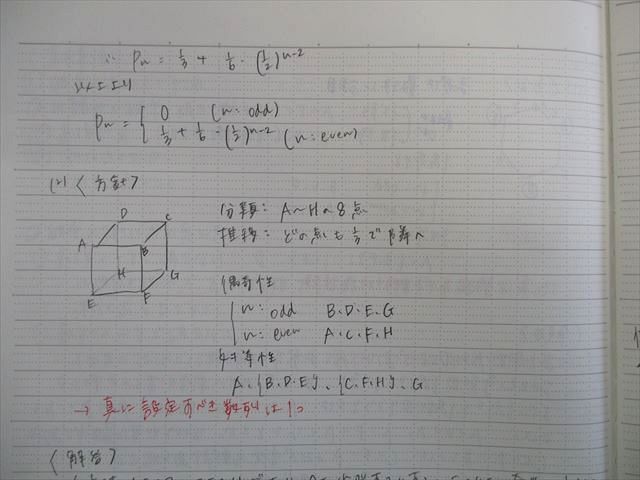 ∴ Pn = 1/3 + 1/6・(1/2)^{n-2}
以上より
Pn = { 0 (n: odd)
1/3 + 1/6・(1/2)^{n-2} (n: even)
(2) <方針>
分類: A〜Hの8点
推移: どの点も1/3で隣へ
D C
A B
H G
E F
偶奇性
n: odd B・D・E・G
n: even A・C・F・H
対等性
A、{B・D・E}、{C・F・H}、G
→ 真に設定すべき数列は1つ
<解答>